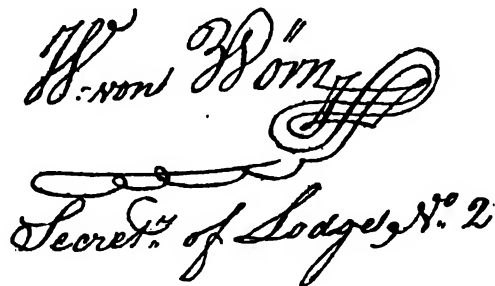 W. von Wörn
Secret.y of Lodge, No. 2